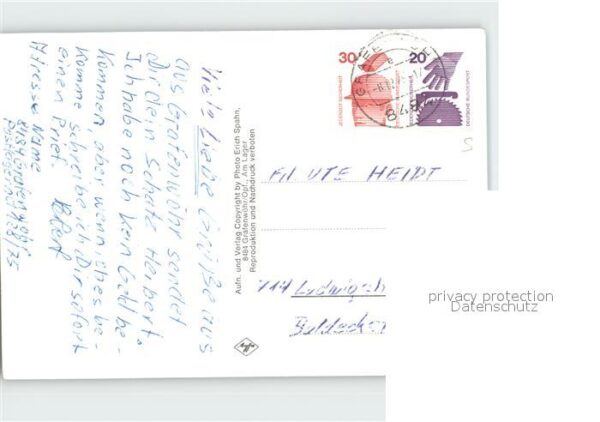 Viele liebe Grüße aus
aus Grafenwöhr sendet
Dir dein Schatz Herbert.
Ich habe noch kein Geld be-
kommen, aber wenn ich es be-
komme schreibe ich Dir sofort
einen Brief.
Adresse Name
8484 Grafenwöhr
Aufn. und Verlag Copyright by Photo Erich Spahn,
8484 Grafenwöhr/Opf., Am Lager
Reproduktion und Nachdruck verboten
30
20
JEDERZEIT SICHERHEIT
DEUTSCHE BUNDESPOST
8484
Frl. UTE HEIDT
714 Ludwigsb
privacy protection
Datenschutz